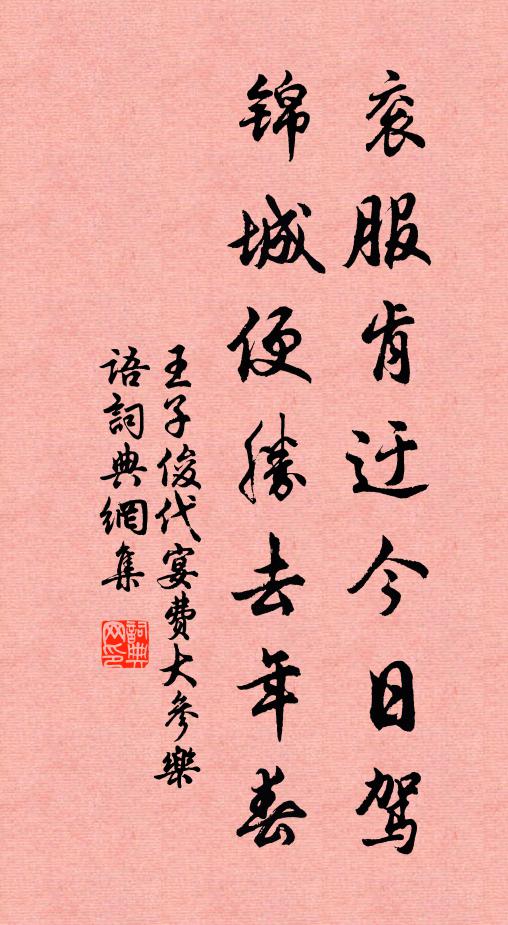 衮服肯迂今日驾
锦城便勝去年春
王子俊代宴费大參樂
语詞典網集
詞典網印